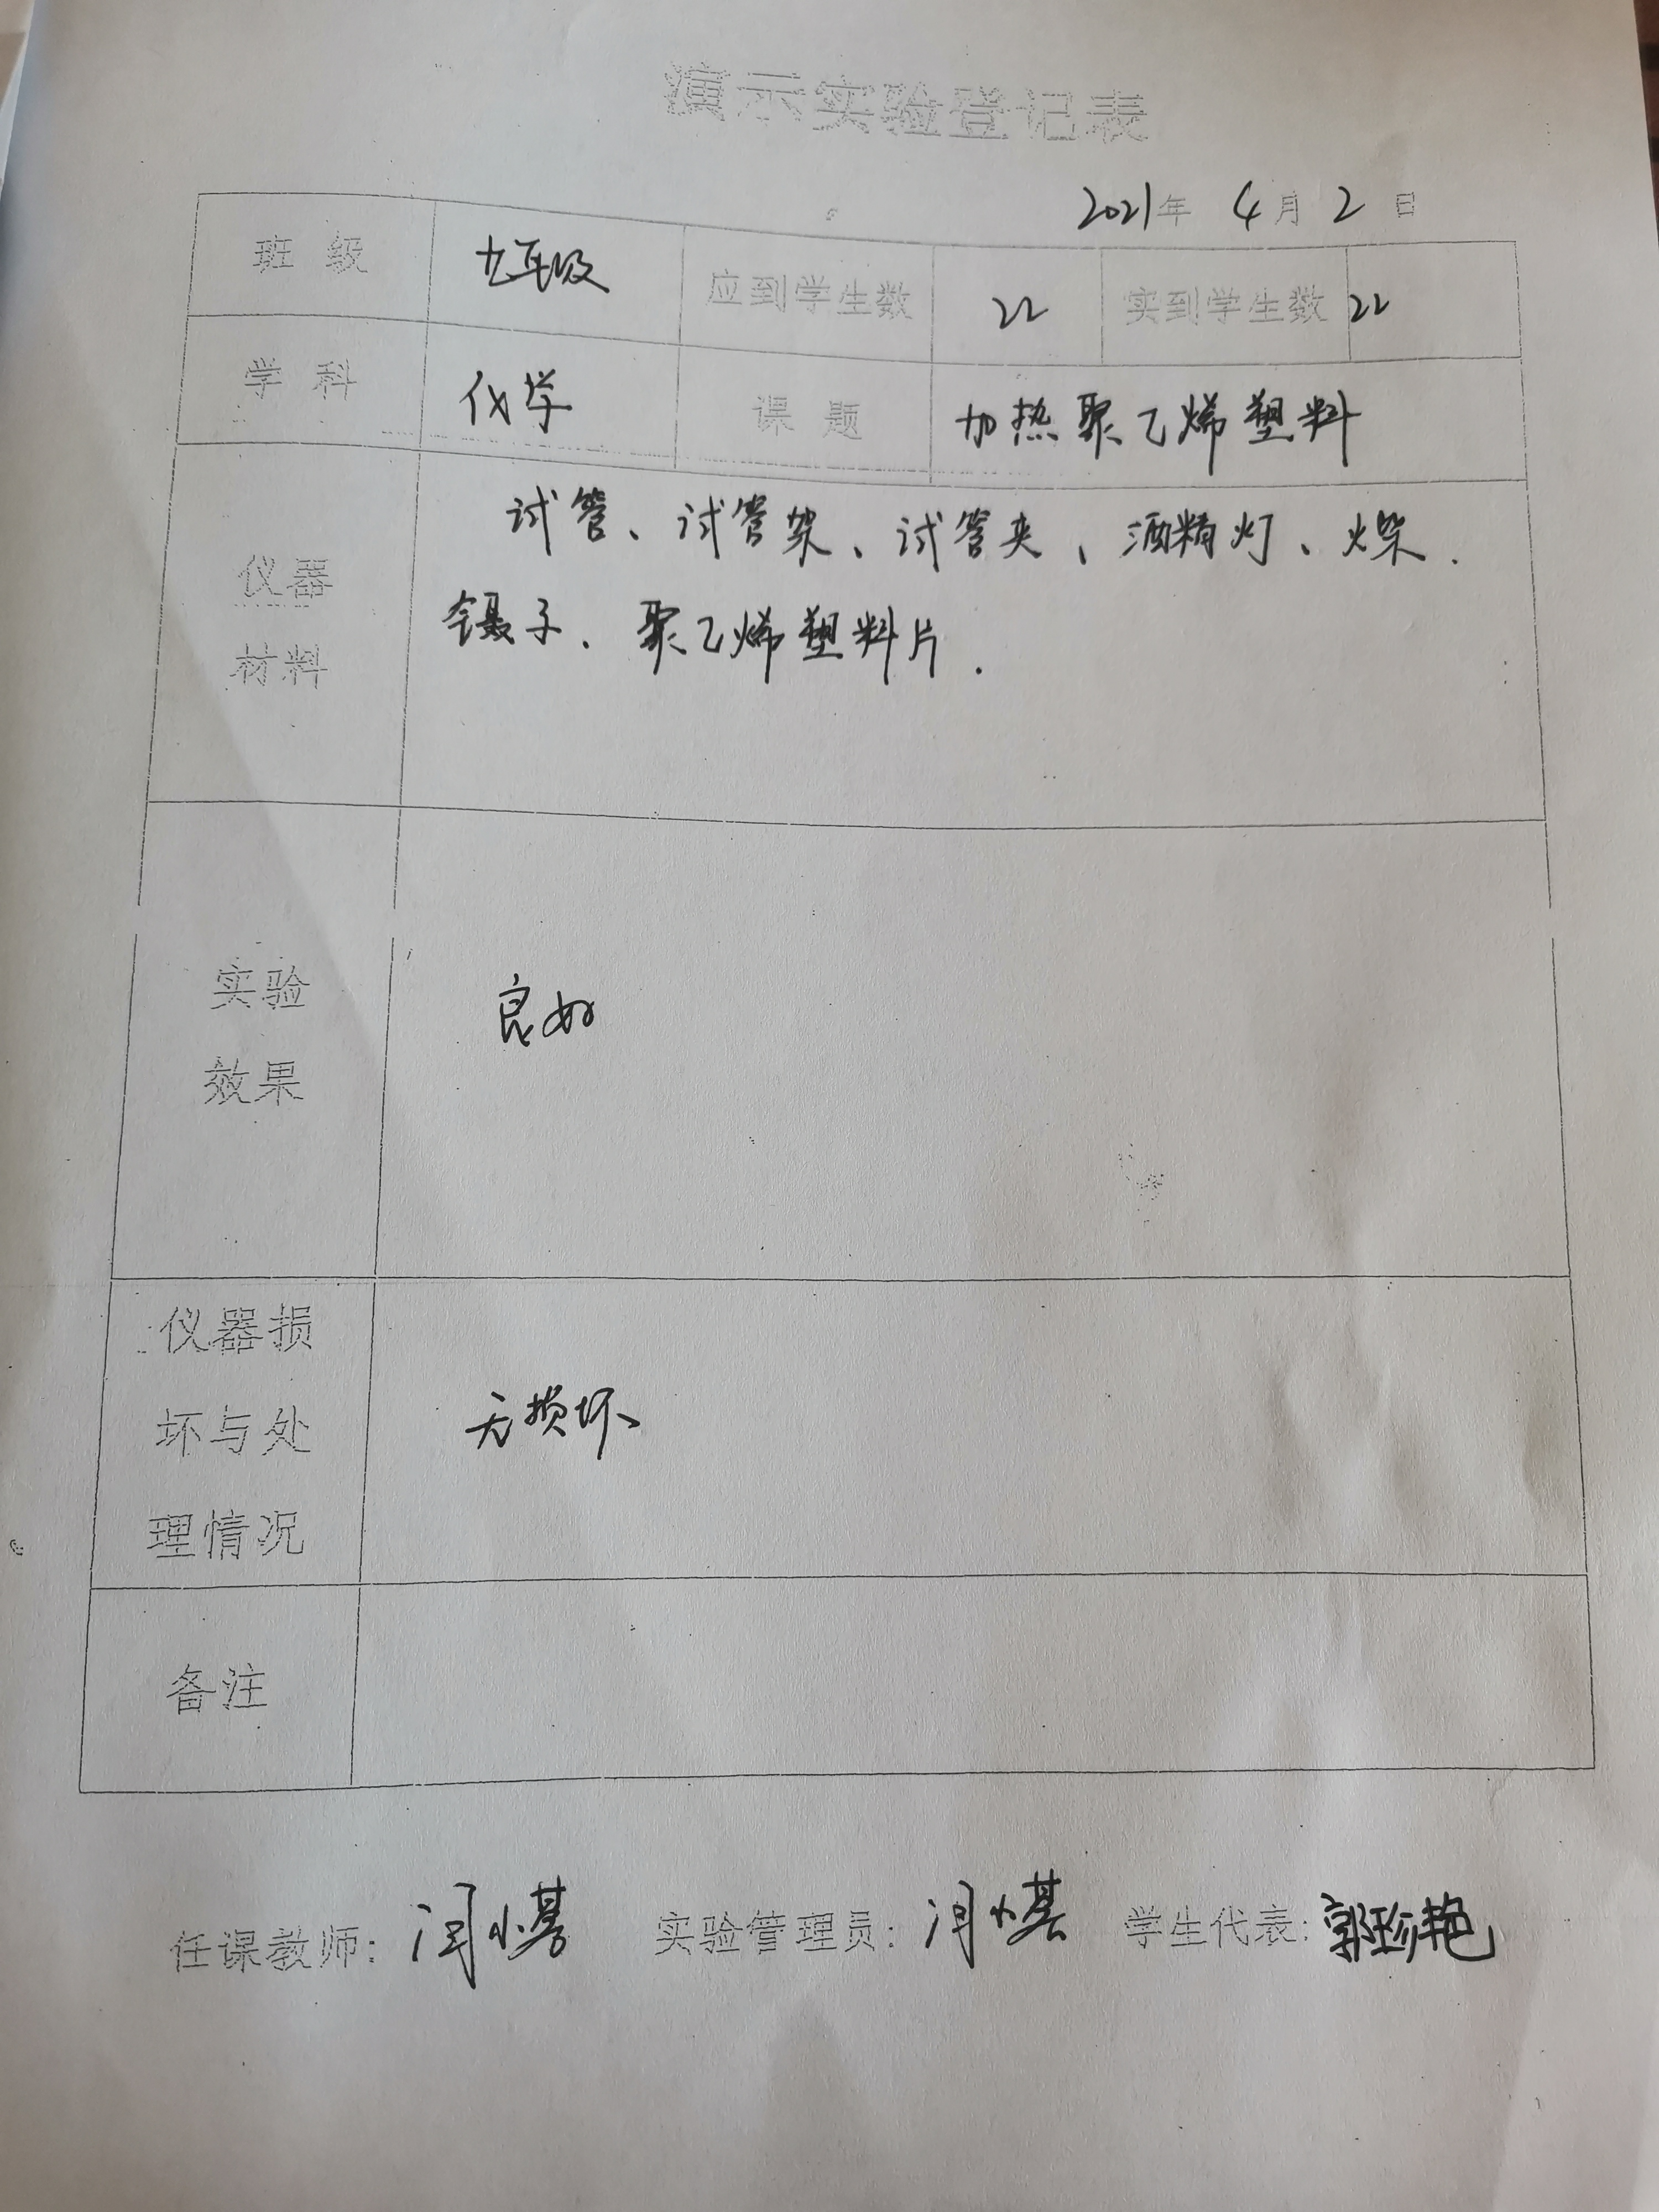 演示实验登记表
2021年 4月 2日
班级 九年级 应到学生数 22 实到学生数 22
学科 化学 课题 加热聚乙烯塑料
仪器
材料
试管、试管架、试管夹、酒精灯、火柴.
镊子.聚乙烯塑料片.
实验
效果
良好
仪器损
坏与处
理情况
无损坏
备注
任课教师: 实验管理员: 学生代表:郭珍艳